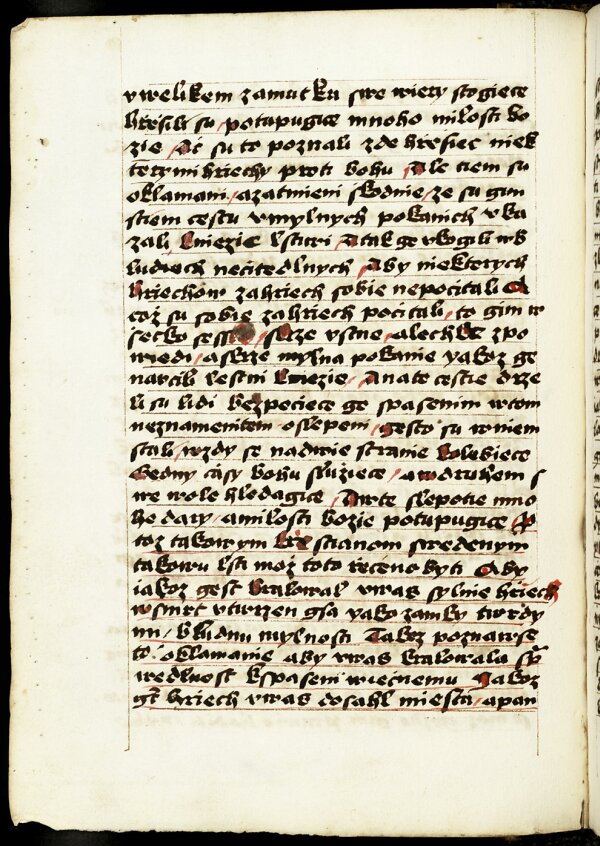 vwelikem zamutku swe wiery stogiece
hrėsili su potupugice mnoho milosti bo
zie Ač su to poznali zde hrėsiec niek
terymi hriechy proti bohu Ale tiem su
oklamani azatmieni skodnie ze su gim
stiem cestu vmylnych pokanich vka
zali kniezie lstiwi Atak ge vkogili wb
ludiech neciteďlnych Aby niekterych
hriechow zahriech sobie nepocitali A
coz su sobie zahriech pocitali to gim w
secko skrze vstne alechke zpo
wiedi askrze mylna pokanie yakoz ge
naucili lestni kniezie Anate cestie drze
li su lidi bezpeciece ge spasenim wtom
neznamenitem oslepeni gesto su wniem
stali wzdy se nadwie stranie kolebiece
Gedny časy bohu sluziece awdruhem s
we wole hledagice Awte slepotie mno
ho dary amilosti bozie potupugice P
toz takowym krėstianom swedenym
takowu lsti moz toto receno byti Aby
iakoz gest kralowal vwas sylnie hriech
wsmrt vtwrzen gsa yako zamky twrdy
mi bludnu mylnosti Takoz poznawsse
to oklamanie aby vwas kralowala sp
wedlnost kspaseni wiecnemu Jakoz
gt hriech vwas dosahl miesta apan